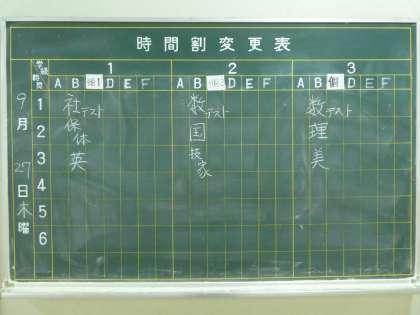 時間割変更表
学級 1 2 3
時限 A B 個1 D E F A B 個2 D E F A B 個 D E F
9月27日木曜
1 社テスト 数テスト 数テスト
2 保体 国 理
3 英 技家 美
4
5
6